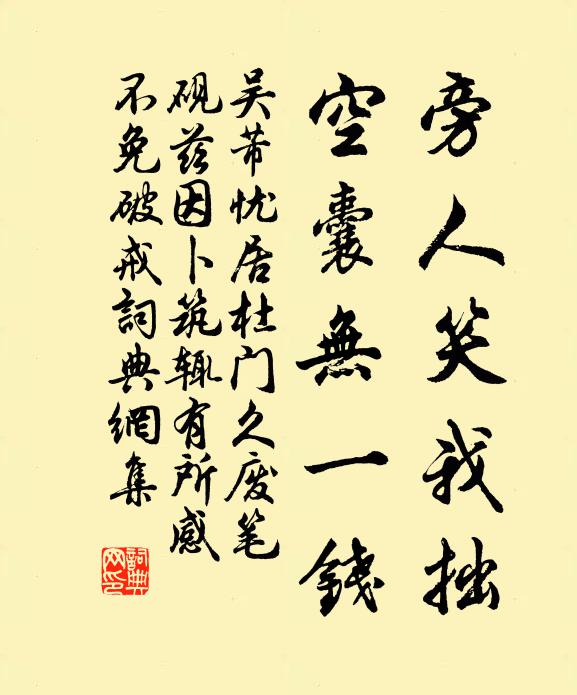 旁人笑我拙
空囊無一錢
吴芾忧居杜门久废笔
砚兹因卜筑辄有所感
不免破戒詞典網集
詞典
网印